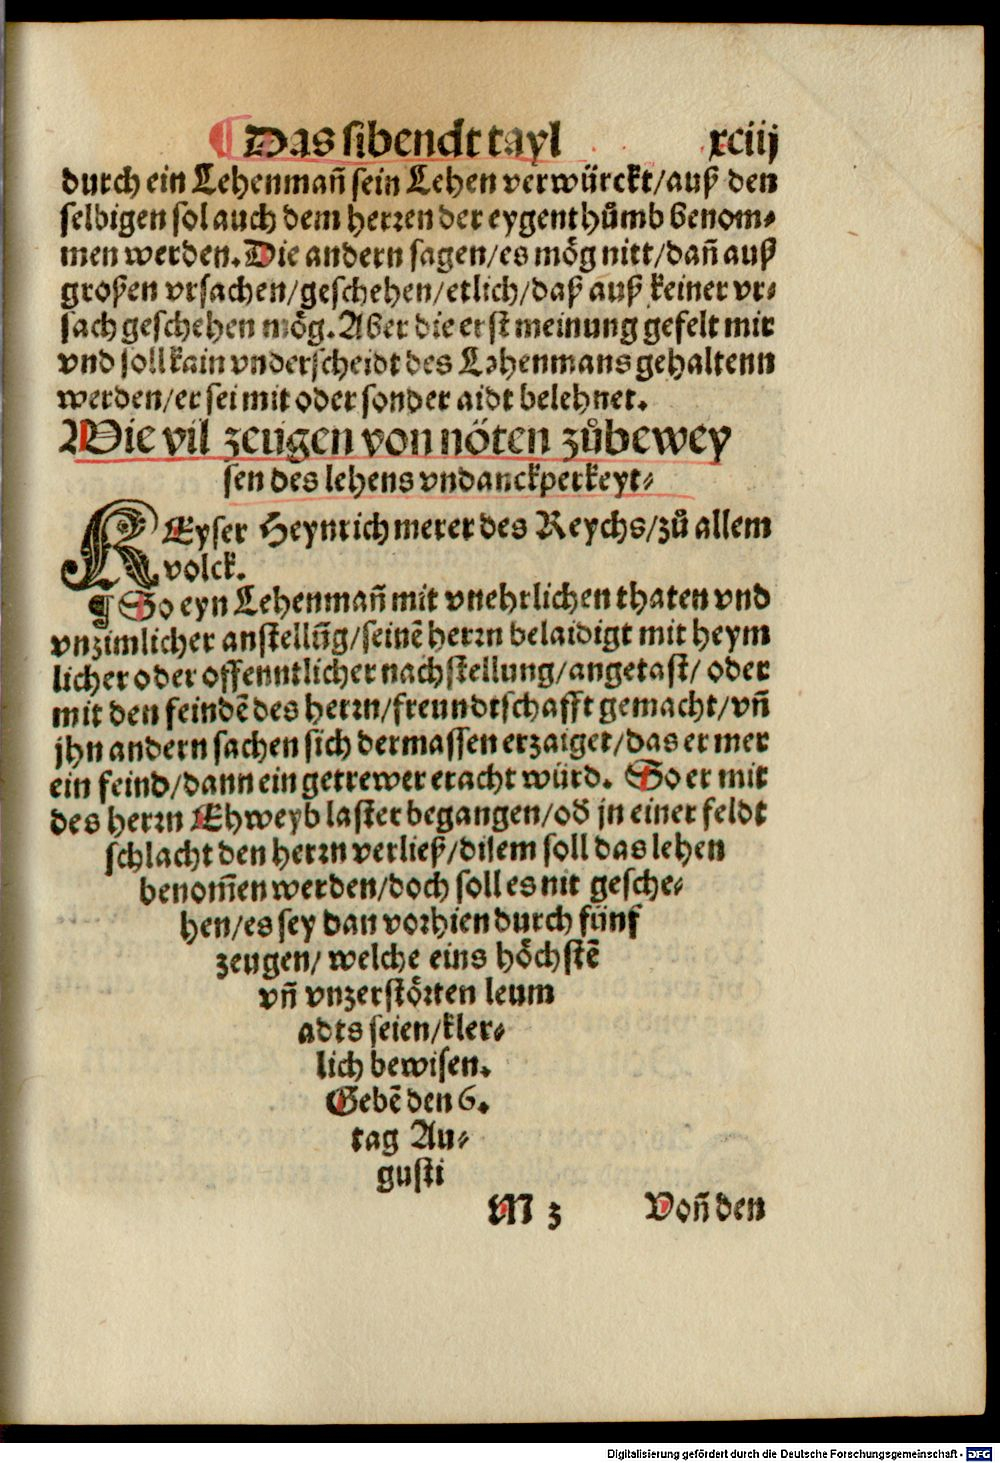 ¶ Das sibendt tayl xciij
durch ein Lehenman̄ sein Lehen verwürckt/auß den
selbigen sol auch dem herren der eygenthůmb benom⸗
men werden. Die andern sagen/es mög nitt/dan̄ auß
großen vrsachen/geschehen/etlich/daß auß keiner vr⸗
sach geschehen mög. Aber die erst meinung gefelt mir
vnd soll kain vnderscheidt des Lehenmans gehaltenn
werden/er sei mit oder sonder aidt belehnet.
Wie vil zeugen von nöten zůbewey
sen des lehens vndanckperkeyt⸗
KEyser Heynrich merer des Reychs/zů allem
volck.
¶ So eyn Lehenman̄ mit vnehrlichen thaten vnd
vnzimlicher anstellūg/seinē herrn belaidigt mit heym
licher oder offenntlicher nachstellung/angetast/ oder
mit den feindē des herrn/freundtschafft gemacht/vn̄
jhn andern sachen sich dermassen erzaiget/das er mer
ein feind/dann ein getrewer eracht würd. So er mit
des herrn Ehweyb laster begangen/od̕ jn einer feldt
schlacht den herrn verließ/disem soll das lehen
benom̄en werden/doch soll es nit gesche⸗
hen/es sey dan vorhien durch fünf
zeugen/ welche eins höchstē
vn̄ vnzerstörten leum
adts seien/kler⸗
lich bewisen.
Gebē den 6.
tag Au⸗
gusti
M 3 Von̄ den
Digitalisierung gefördert durch die Deutsche Forschungsgemeinschaft - DFG